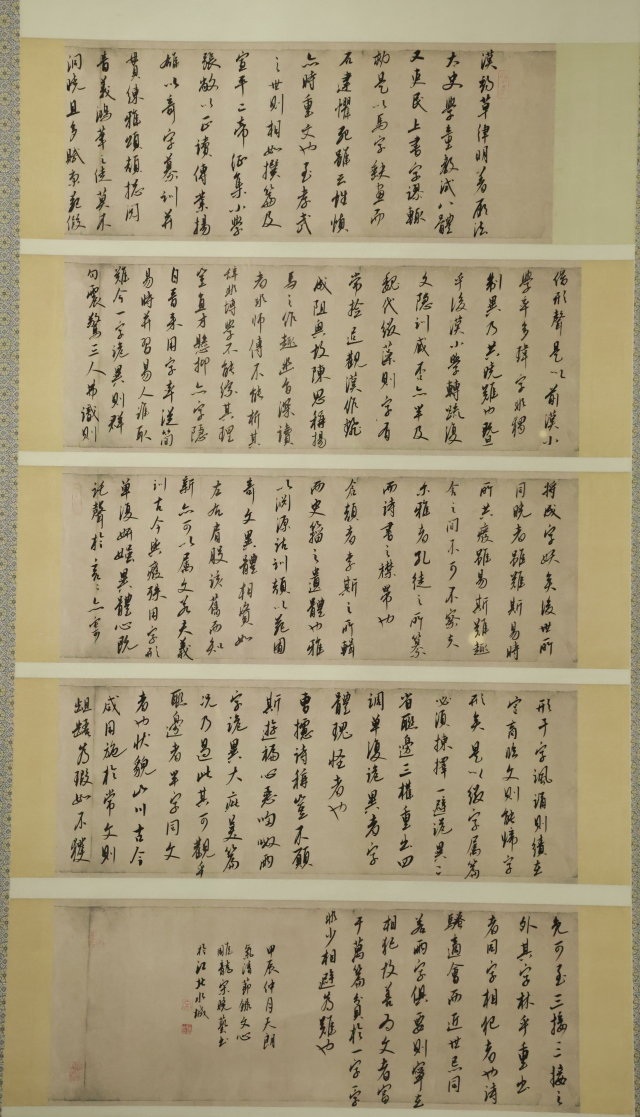 漢初草律明著厥法
太史學童教試八體
又吏民上書字謬輒
劾是以馬字缺畫而
石建懼死雖云性慎
亦時重文也至孝武
之世則相如撰篇及
宣平二帝征集小學
張敞以正讀傳業揚
雄以奇字纂訓并
貫練雅頌頡總閱
音義鴻筆之徒莫不
洞曉且多賦京苑假
借形聲是以前漢小
學率多瑋字非獨
制異乃共曉難也暨
乎後漢小學轉疏復
文隱訓臧否亦半及
魏代綴藻則字有
常檢追觀漢作翻
成阻奧故陳思稱揚
馬之作趣幽旨深讀
者非師傳不能析其
辭非博學不能綜其理
豈直才懸抑亦字隱
自晉來用字率從簡
易時并習易人誰取
難今一字詭異則群
句震驚三人弗識則
將成字妖矣後世所
同曉者雖難斯易時
所共廢雖易斯難趣
舍之間不可不察夫
爾雅者孔徒之所纂
而詩書之襟帶也
倉頡者李斯之所輯
而史籀之遺體也雅
以淵源詁訓頡以苑囿
奇文異體相資如
左右肩股該舊而知
新亦可以屬文若夫義
訓古今興廢殊用字形
單復妍媸異體心既
託聲於言言亦寄
形于字諷誦則績在
宮商臨文則能歸字
形矣是以綴字屬篇
必須揀擇一避詭異二
省聯邊三權重出四
調單復詭異者字
體瑰怪者也
曹攄詩稱豈不願
斯遊褊心惡吶呶兩
字詭異大疵美篇
況乃過此其可觀乎
聯邊者半字同文
者也狀貌山川古今
咸用施於常文則
齟齬為瑕如不獲
免可至三接三接之
外其字林乎重出
者同字相犯者也詩
騷適會而近世忌同
若兩字俱要則寧在
相犯故善為文者富
于萬篇貧於一字一字
非少相避為難也
甲辰仲月天朗
氣清節錄文心
雕龍宋曉藝書
於江北水城